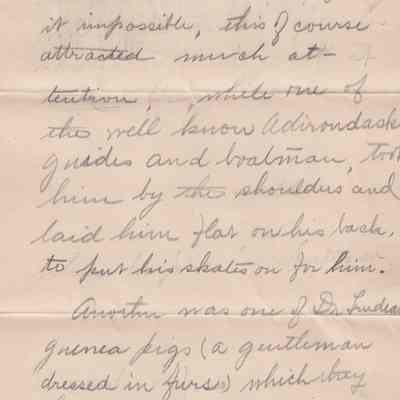 it impossible, this of course
attracted much at-
tention, while one of
the well know Adirondack
guides and boatman, took
him by the shoulders and
laid him flat on his back,
to put his skates on for him.
Another was one of Dr Trudeau
guenea pigs (a gentleman
dressed in furs) which